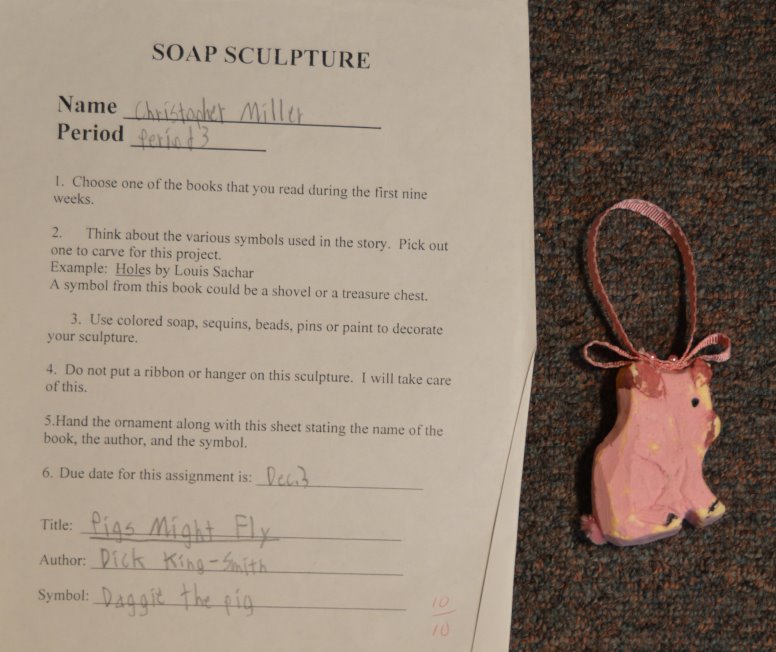 SOAP SCULPTURE
Name Christopher Miller
Period Period 3
1. Choose one of the books that you read during the first nine
weeks.
2. Think about the various symbols used in the story. Pick out
one to carve for this project.
Example: Holes by Louis Sachar
A symbol from this book could be a shovel or a treasure chest.
3. Use colored soap, sequins, beads, pins or paint to decorate
your sculpture.
4. Do not put a ribbon or hanger on this sculpture. I will take care
of this.
5.Hand the ornament along with this sheet stating the name of the
book, the author, and the symbol.
6. Due date for this assignment is: Dec.3
Title: Pigs Might Fly
Author: Dick King-Smith
Symbol: Daggie the pig
10
10